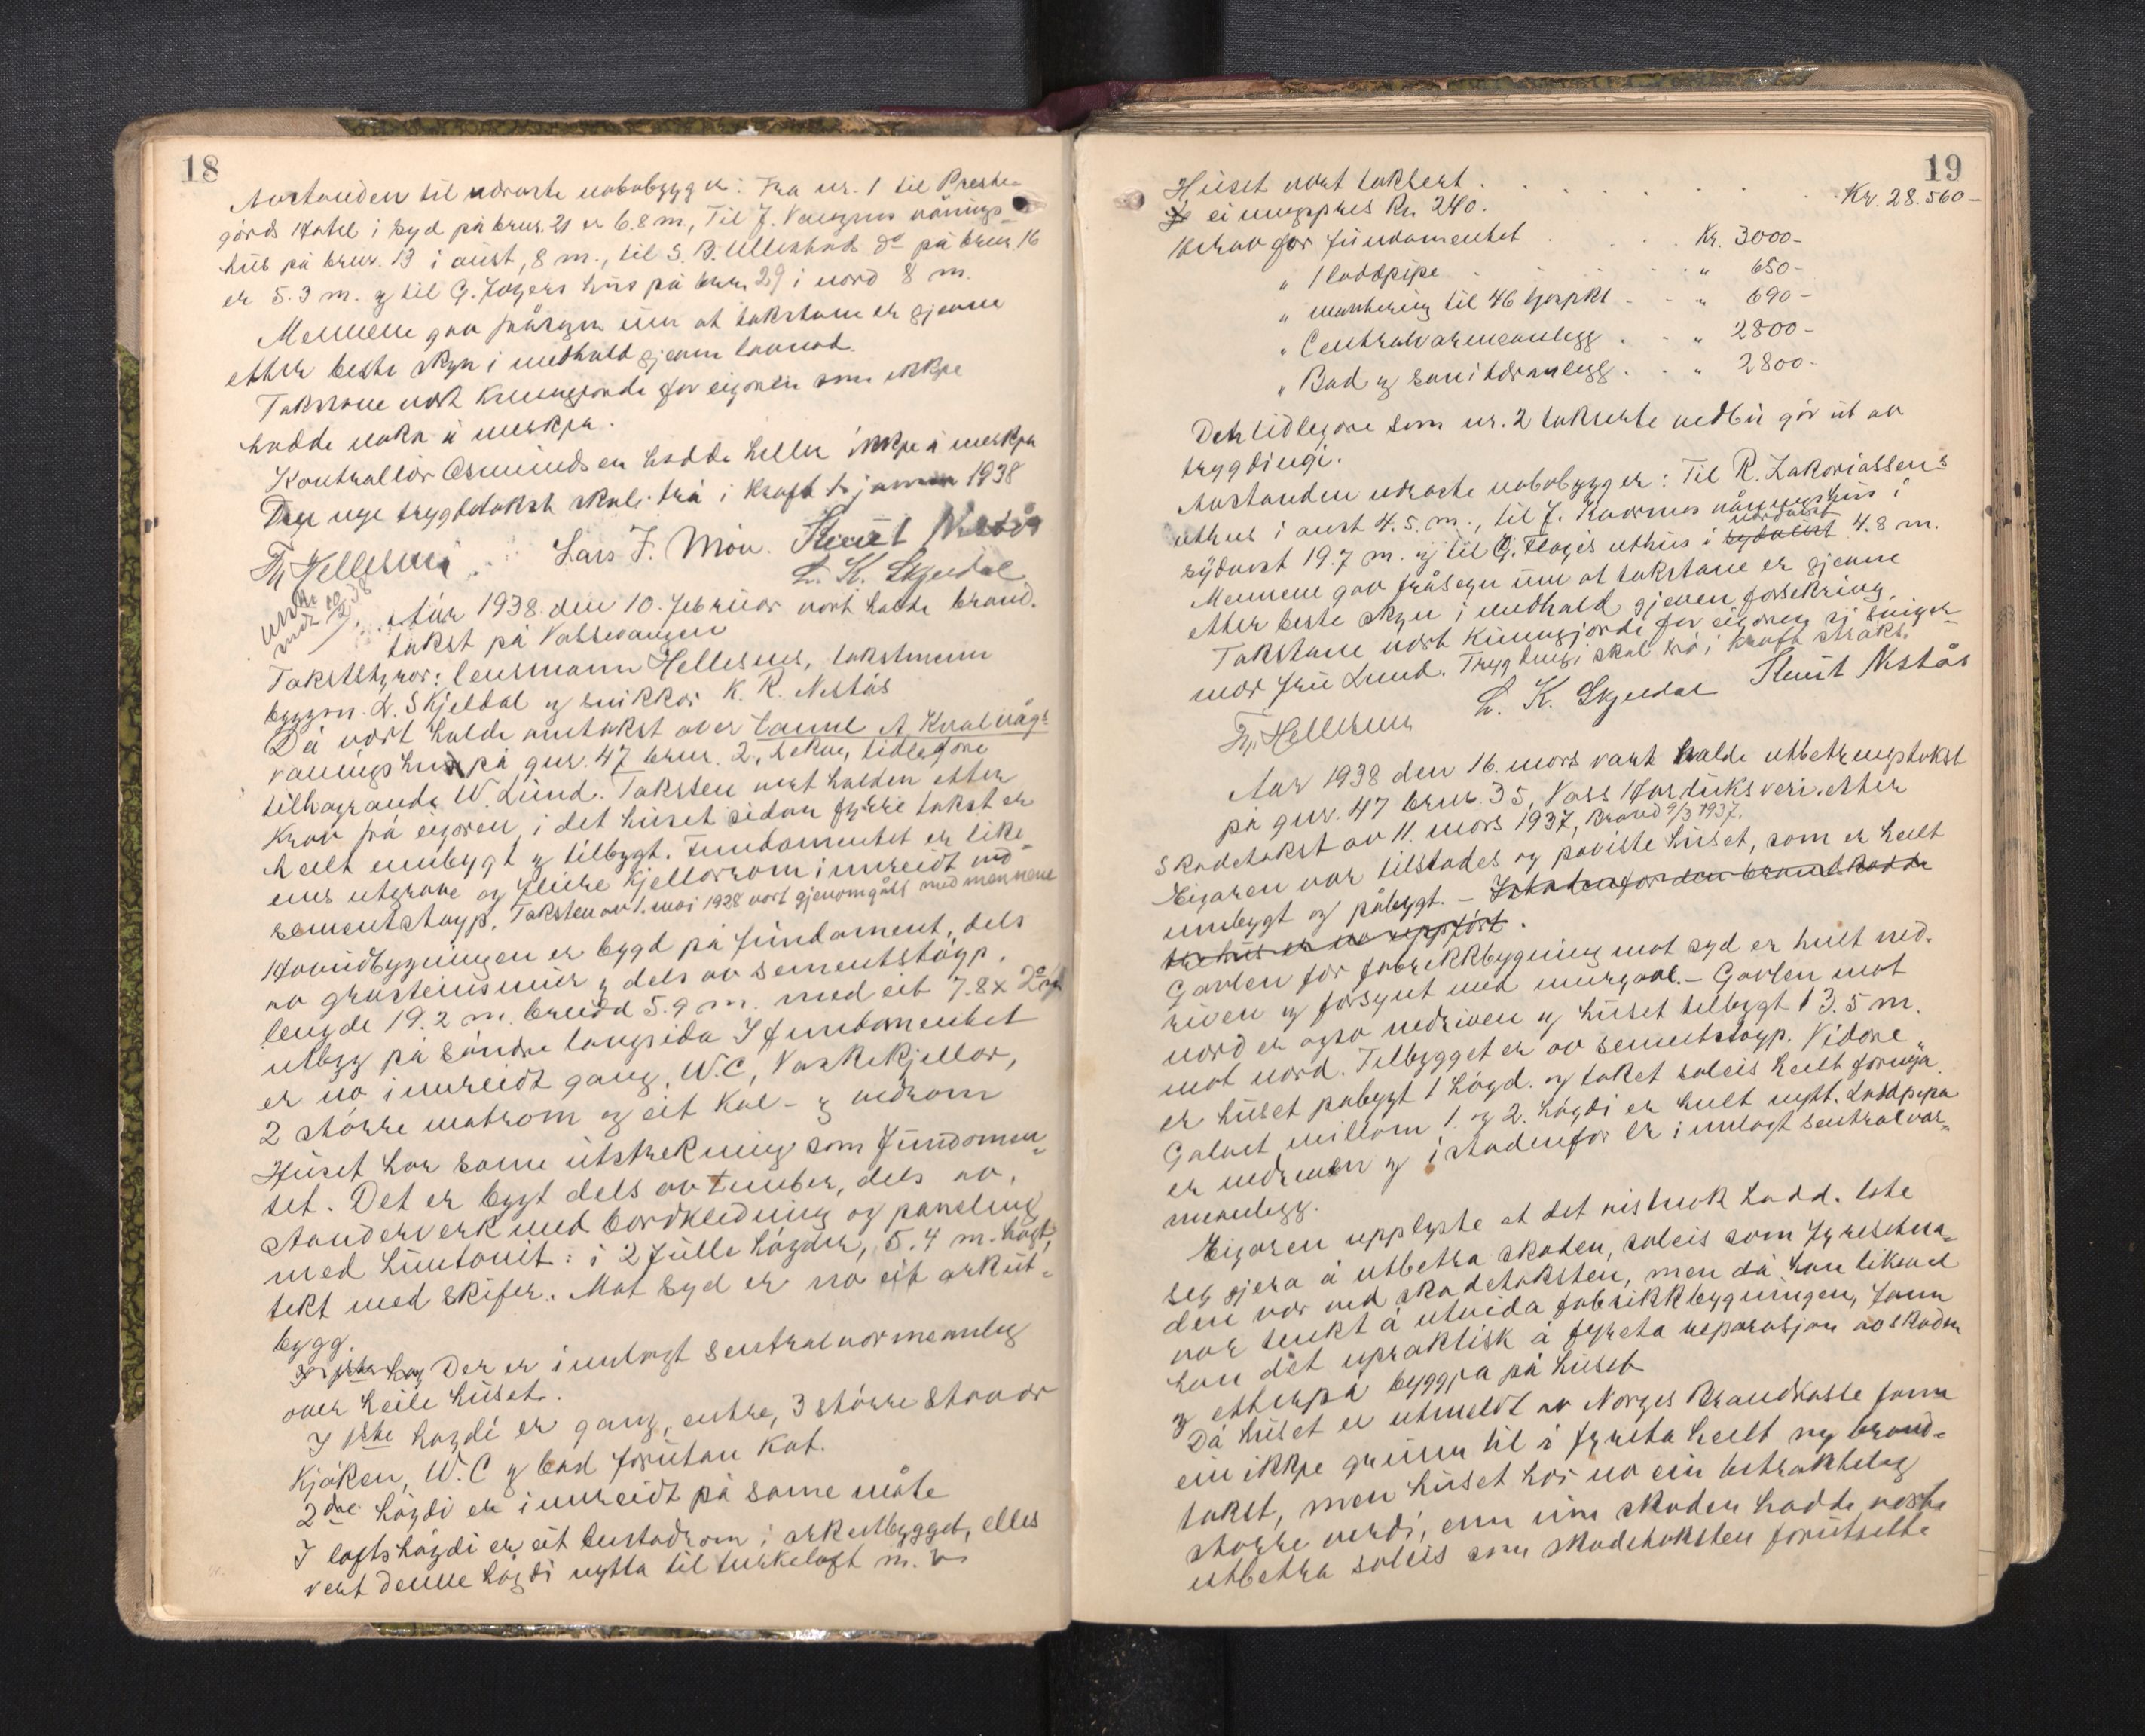 18
Avstanden til næraste nabobygg er: Fra nr. 1 til Preste-
gårds Hotel i syd på brnr. 21 er 6.8 m, Til J. Vangens vånings-
hus på brnr. 13 i aust, 8 m., til S. B. Ullestads do på brnr 16
er 5.3 m. og til G. hus på brnr 29 i nord 8 m.
Mennene gav fråsegn um at takstane er gjevne
etter beste skyn i medhald gjevn lovnad.
Takstane vart kunngjorde for eigaren som ikkje
hadde noko å merkja.
Kontrollør Osmundsen hadde heller ikkje å merkja
Den nye trygdetakst skal trå i kraft 1. januar 1938
Th Hellesnes Lars F. Møn. Knut Nestås
L. K. Skjeldal
10/2 38
År 1938 den 10. februar vart halde brand-
takst på Vossevangen
Takststyrar: lensmann Hellesnes, takstmenn
byggm. L. Skjeldal og snikkar K. R. Nestås
Då vart halde omtakst over Kvalvågs
våningshus på gnr. 47 brnr. 2, Lekve, tidlegare
tilhøyrande W. Lund. Taksten vert halden etter
krav frå eigaren, i det huset sidan fyrre takst er
heilt umbygt og tilbygt. Fundamentet er like-
eins utgrave og fleire kjellarrom innreidt ved
sementstøyp. Taksten av 1. mai 1928 vart gjenomgått med mennene
Hovudbygningen er bygd på fundament, dels
av gråsteinsmur og dels av sementstøyp.
lengde 19.2 m. breidd 5.9 m. med eit 7.8 x
utbygg på søndre langsida I fundamentet
er no innreidt gang, W.C, Vaskekjellar,
2 større matrom og eit kol- og vedrom
Huset har same utstrekning som fundamen-
tet. Det er bygt dels av tømber, dels av
standerverk med bordkledning og paneling
med huntonit: i 2 fulle høgder, 5.4 m. høgt,
tekt med skifer. Mot syd er no eit arkut-
bygg.
Der er innlagt sentralvarmeanlegg
over heile huset.
I 1ste høgdi er gang, entre, 3 større stovor
kjøken, W.C og bad forutan kot.
2dre høgdi er innreidt på same måte
I loftshøgdi er eit bustadrom i arkutbygget, elles
vert denne høgdi nytta til turkeloft m. v.
19
Huset vart taksert . . . . . . . Kr. 28.560-
ei ungspris Kr. 240.
Herav for fundamentet . . . Kr. 3000-
" 1 loddpipe . . . " 650-
" montering til 46 ljospkt . . " 690-
" Centralvarmeanlegg . . " 2800-
" Bad og sanitæranlegg . . " 2800-
Det tidlegare som nr. 2 takserte vedbu går ut av
trygdingi.
Avstanden næraste nabobygg er: Til R. Zakariassens
uthus i aust 4.5. m., til J. Kvarmes våningshus i
sydvest 19.7 m. og til G. uthus i nordaust sydaust 4.8 m.
Mennene gav fråsegn um at takstane er gjevne
etter beste skyn i medhald gjeven forsikring.
Takstane vart kunngjorde for eigaren sj
mor fru Lund. Trygdingi skal trå i kraft straks.
Th. Hellesnes L. K. Skjeldal Knut Nestås
Aar 1938 den 16. mars vart halde utbetringstakst
på gnr. 47 brnr. 35, Voss etter
skadetakst av 11. mars 1937, Brand 9/3 1937.
Eigaren var tilstades og påviste huset, som er heilt
umbygt og påbygt. - Istadenfor den brandskadde
tre hus er no uppført.
Gavlen for fabrikkbygning mot syd er heilt ned-
riven og forsynt med murgavl. - Gavlen mot
nord er ogso nedriven og huset tilbygt 13.5 m.
mot nord. Tilbygget er av sementstøyp. Vidare
er huset påbygt 1 høgd. og taket soleis heilt fornya.
Golvet millom 1. og 2. høgdi er heilt nytt. Loddpipa
er nedriven og istadenfor er innlagt sentralvar-
meanlegg.
Eigaren upplyste at det nistnok hadd. late
seg gjera å utbetra skaden, soleis som fyresetna-
den var ved skadetaksten, men då han likevel
var tenkt å utvida fabrikkbygningen, fann
han det upraktisk å fyreta reparasjon av skaden
og etterpå byggja på huset
Då huset er utmeldt av Norges Brandkasse fann
ein ikkje grunn til å fyreta heilt ny brand-
takst, men huset har no ein betrakteleg
større verdi, enn um skaden hadde vorte
utbetra soleis som skadetaksten forutsette